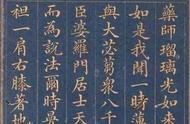 藥師瑠璃光如來
如是我聞一時薄
與大苾芻衆八千
臣婆羅門居士天
而為說法爾時曼
袒一肩右膝著地